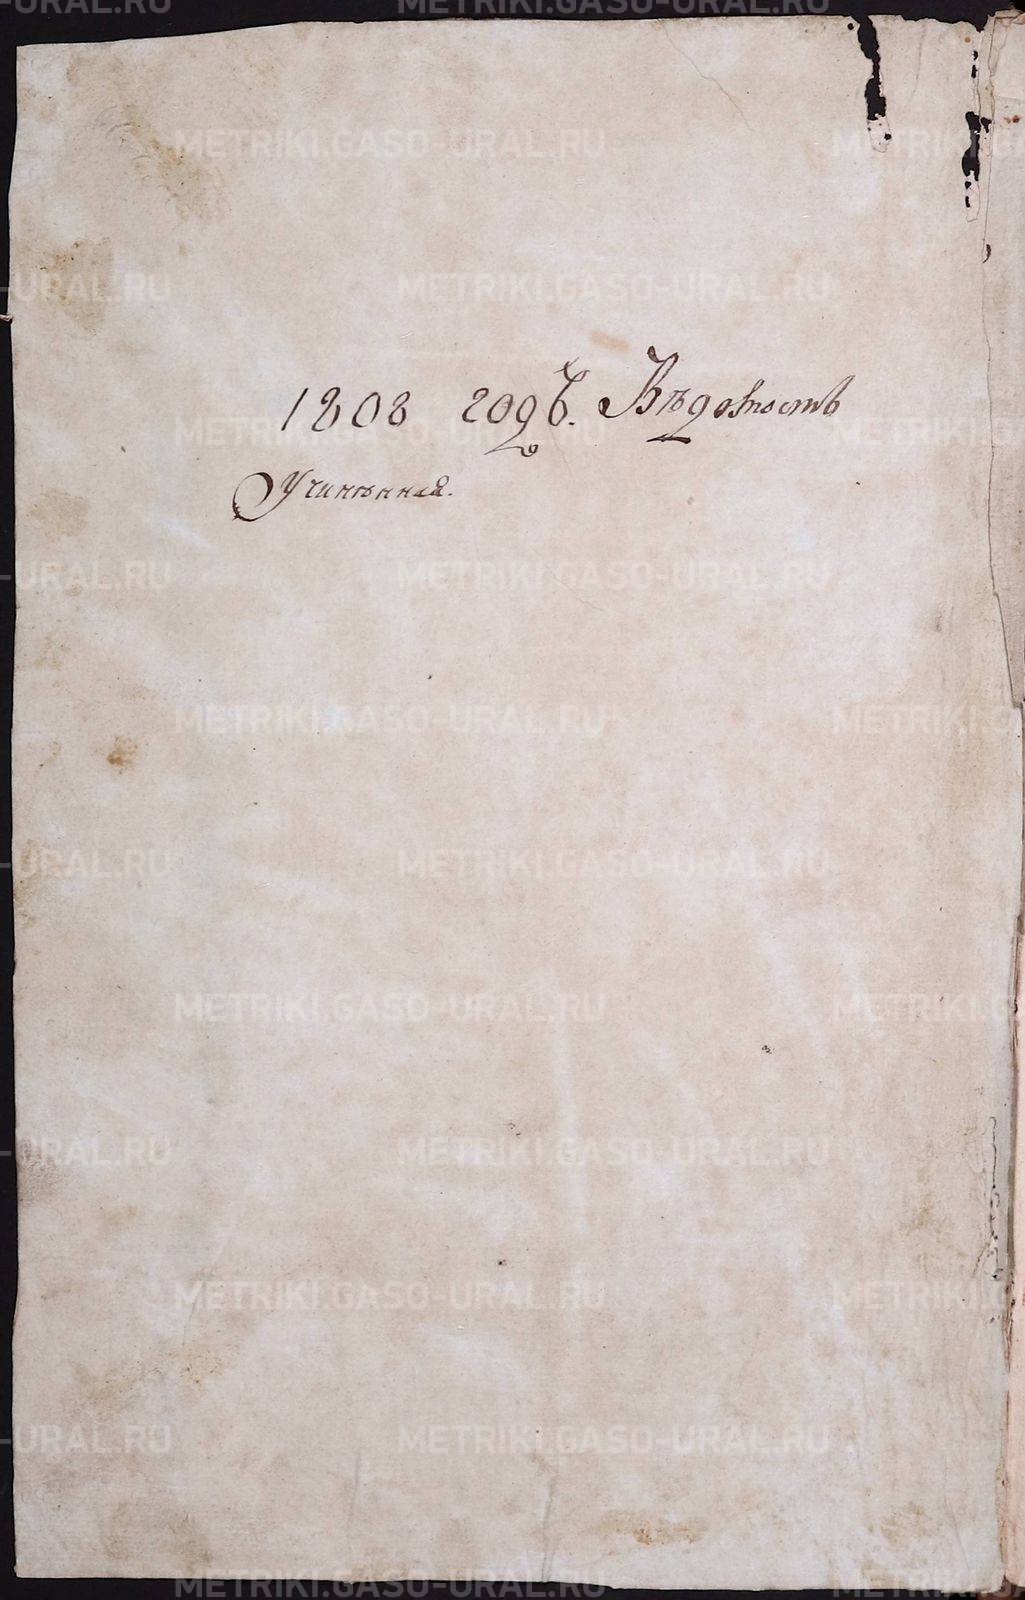 1808 годъ. Вѣдомость
Учинѣнная.
METRIKI.GASO-URAL.RU